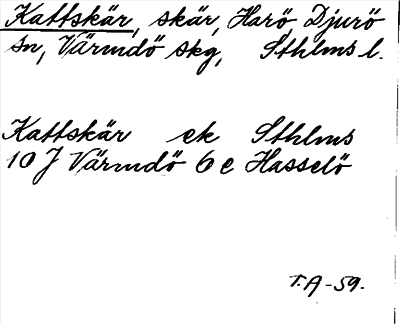 Kattskär, skär, Harö, Djurö
sn, Värmdö skg, Sthlms l.
Kattskär ek Sthlms
10 J Värmdö 6 e Hasselö
T.A-59.